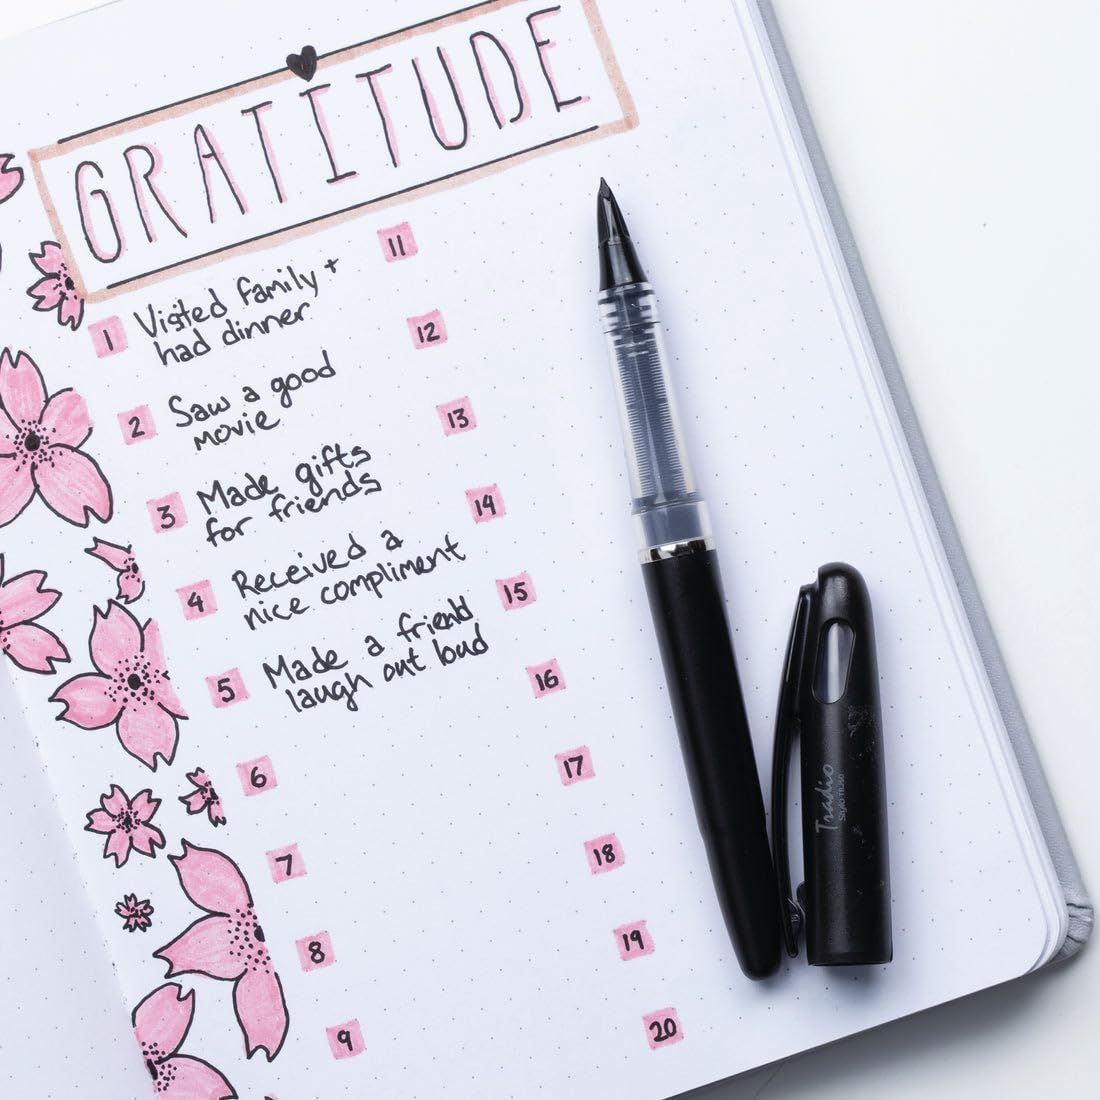 GRATITUDE
1 Visited family +
had dinner
2 Saw a good
movie
3 Made gifts
for friends
4 Received a
nice compliment
5 Made a friend
laugh out loud
6
7
8
9
11
12
13
14
15
16
17
18
19
20
Tradio
Stylo TRJ50